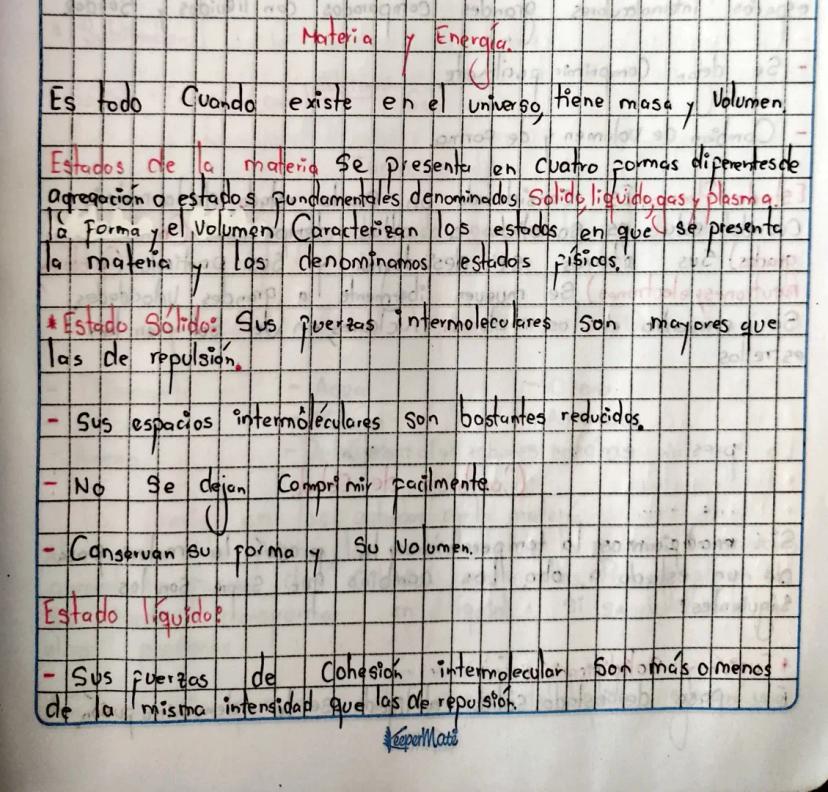 Materia y Energía.
Es todo Cuando existe en el universo, tiene masa y Volumen.
Estados de la materia se presenta en cuatro formas diferentes de
agregación o estados fundamentales denominados Solido, liquido, gas y plasma.
la Forma y el Volumen Caracterizan los estados en que se presenta
la materia y los denominamos estados físicos.
* Estado Sólido: Sus fuerzas intermoleculares son mayores que
las de repulsión.
- Sus espacios intermoléculares son bastantes reducidos.
- No se dejan Comprimir facilmente.
- Conservan su forma y su Volumen.
Estado líquido:
- Sus fuerzas de Cohesión intermolecular son más o menos
de la misma intensidad que las de repulsión.
KeeperMate